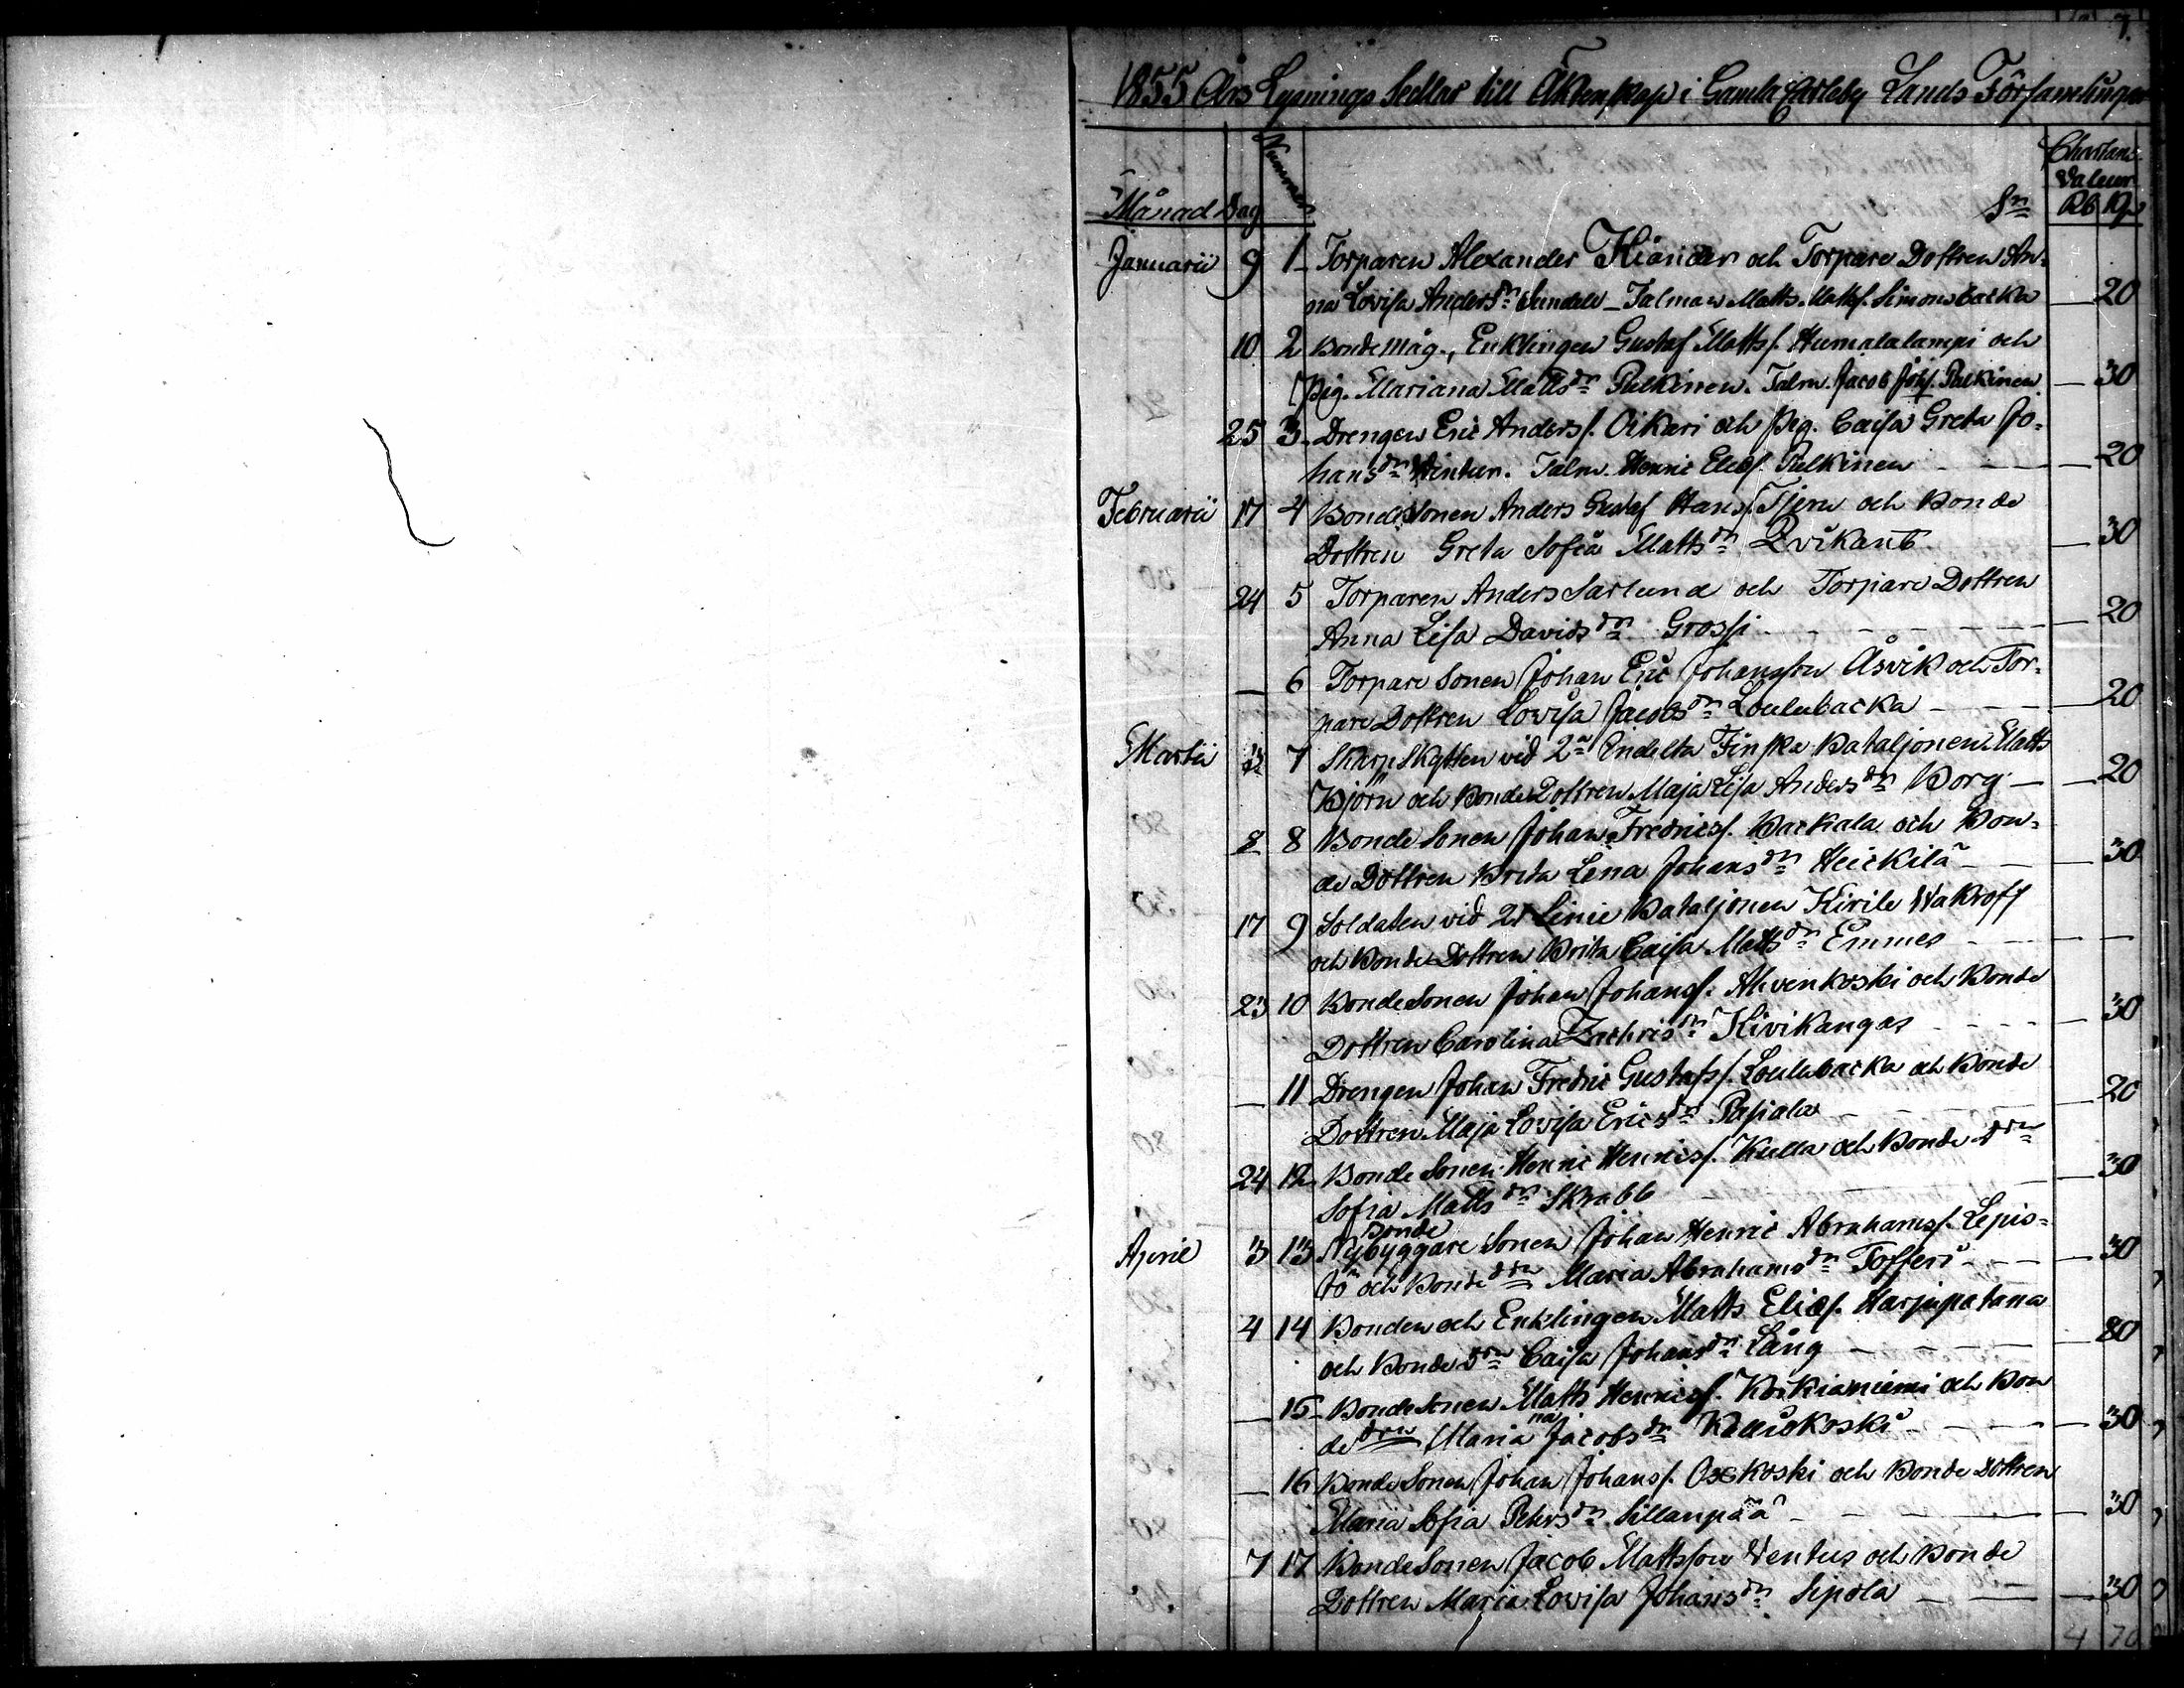 7.
1855 Års Lysnings Sedlar till Äktenskap i Gamla Carleby Lands Församlingar
Månad Dag Nummer Sn Chartæ Valeur Rb Kp
Januarii 9 1 Torparen Alexander Kiander och Torpare Dottren An-
na Lovisa Andersdr Sundell _ Talman Matts Mattss. Simonsbacka — 20
10 2 Bondemåg., Enklingen Gustaf Mattss. Humalalampi och
Pig. Mariana Mattsdr Pulkinen. Talm. Jacob Johss. Pulkinen — 30
25 3 Drengen Eric Anderss. Oikari och Pig. Caisa Greta Jo-
hansdr Winter. Talm. Henric Eliæs. Pulkinen — 20
Februarii 17 4 Bonde Sonen Anders Gustaf Hanss. Tjeru och Bonde
Dottren Greta Sofia Mattsdr Qvikant — 30
24 5 Torparen Anders Sarlund och Torpare Dottren
Anna Lisa Davidsdr Grossi — 20
— 6 Torpare Sonen Johan Eric Johansson Åsvik och Tor-
pare Dottren Lovisa Jacobsdr Loulubacka — 20
Martii 3 7 Skarp Skytten vid 2a Indelta Finska Bataljonen Matts
Björn och Bonde Dottren Maja Lisa Andersdr Borg — 20
8 8 Bonde Sonen Johan Fredricss. Backala och Bon-
de Dottren Brita Lena Johansdr Heickilä — 30
17 9 Soldaten vid 21 Linie Bataljonen Kirile Wakroff
och Bonde Dottren Brita Caisa Mattsdr Emmes —
23 10 Bonde Sonen Johan Johanss. Ahvenkoski och Bonde
Dottren Carolina Zachrisdr Kivikangas — 30
— 11 Drengen Johan Fredric Gustafss. Loulubacka och Bonde
Dottren Maja Lovisa Ericsdr Passiala — 20
24 12 Bonde Sonen Henric Henricss. Kulla och Bonde drn
Sofia Mattsdr Skrabb — 30
Bonde
April 3 13 Nybyggare Sonen Johan Henric Abrahamss. Lepis-
tö och Bonde drn Maria Abrahamsdr Tofferi — 30
4 14 Bonden och Enklingen Matts Eliæs. Harjupatana
och Bonde drn Caisa Johansdr Lång — 80
— 15 Bonde Sonen Matts Henricss. Korkianiemi och Bon
de drn Mariana Jacobsdr Kalliokoski — 30
— 16 Bonde Sonen Johan Johanss. Oxkoski och Bonde Dottren
Maria Sofia Pehrsdr Sillanpää — 30
7 17 Bonde Sonen Jacob Mattsson Wentus och Bonde
Dottren Maria Lovisa Johansdr Sipola — 30
4 70